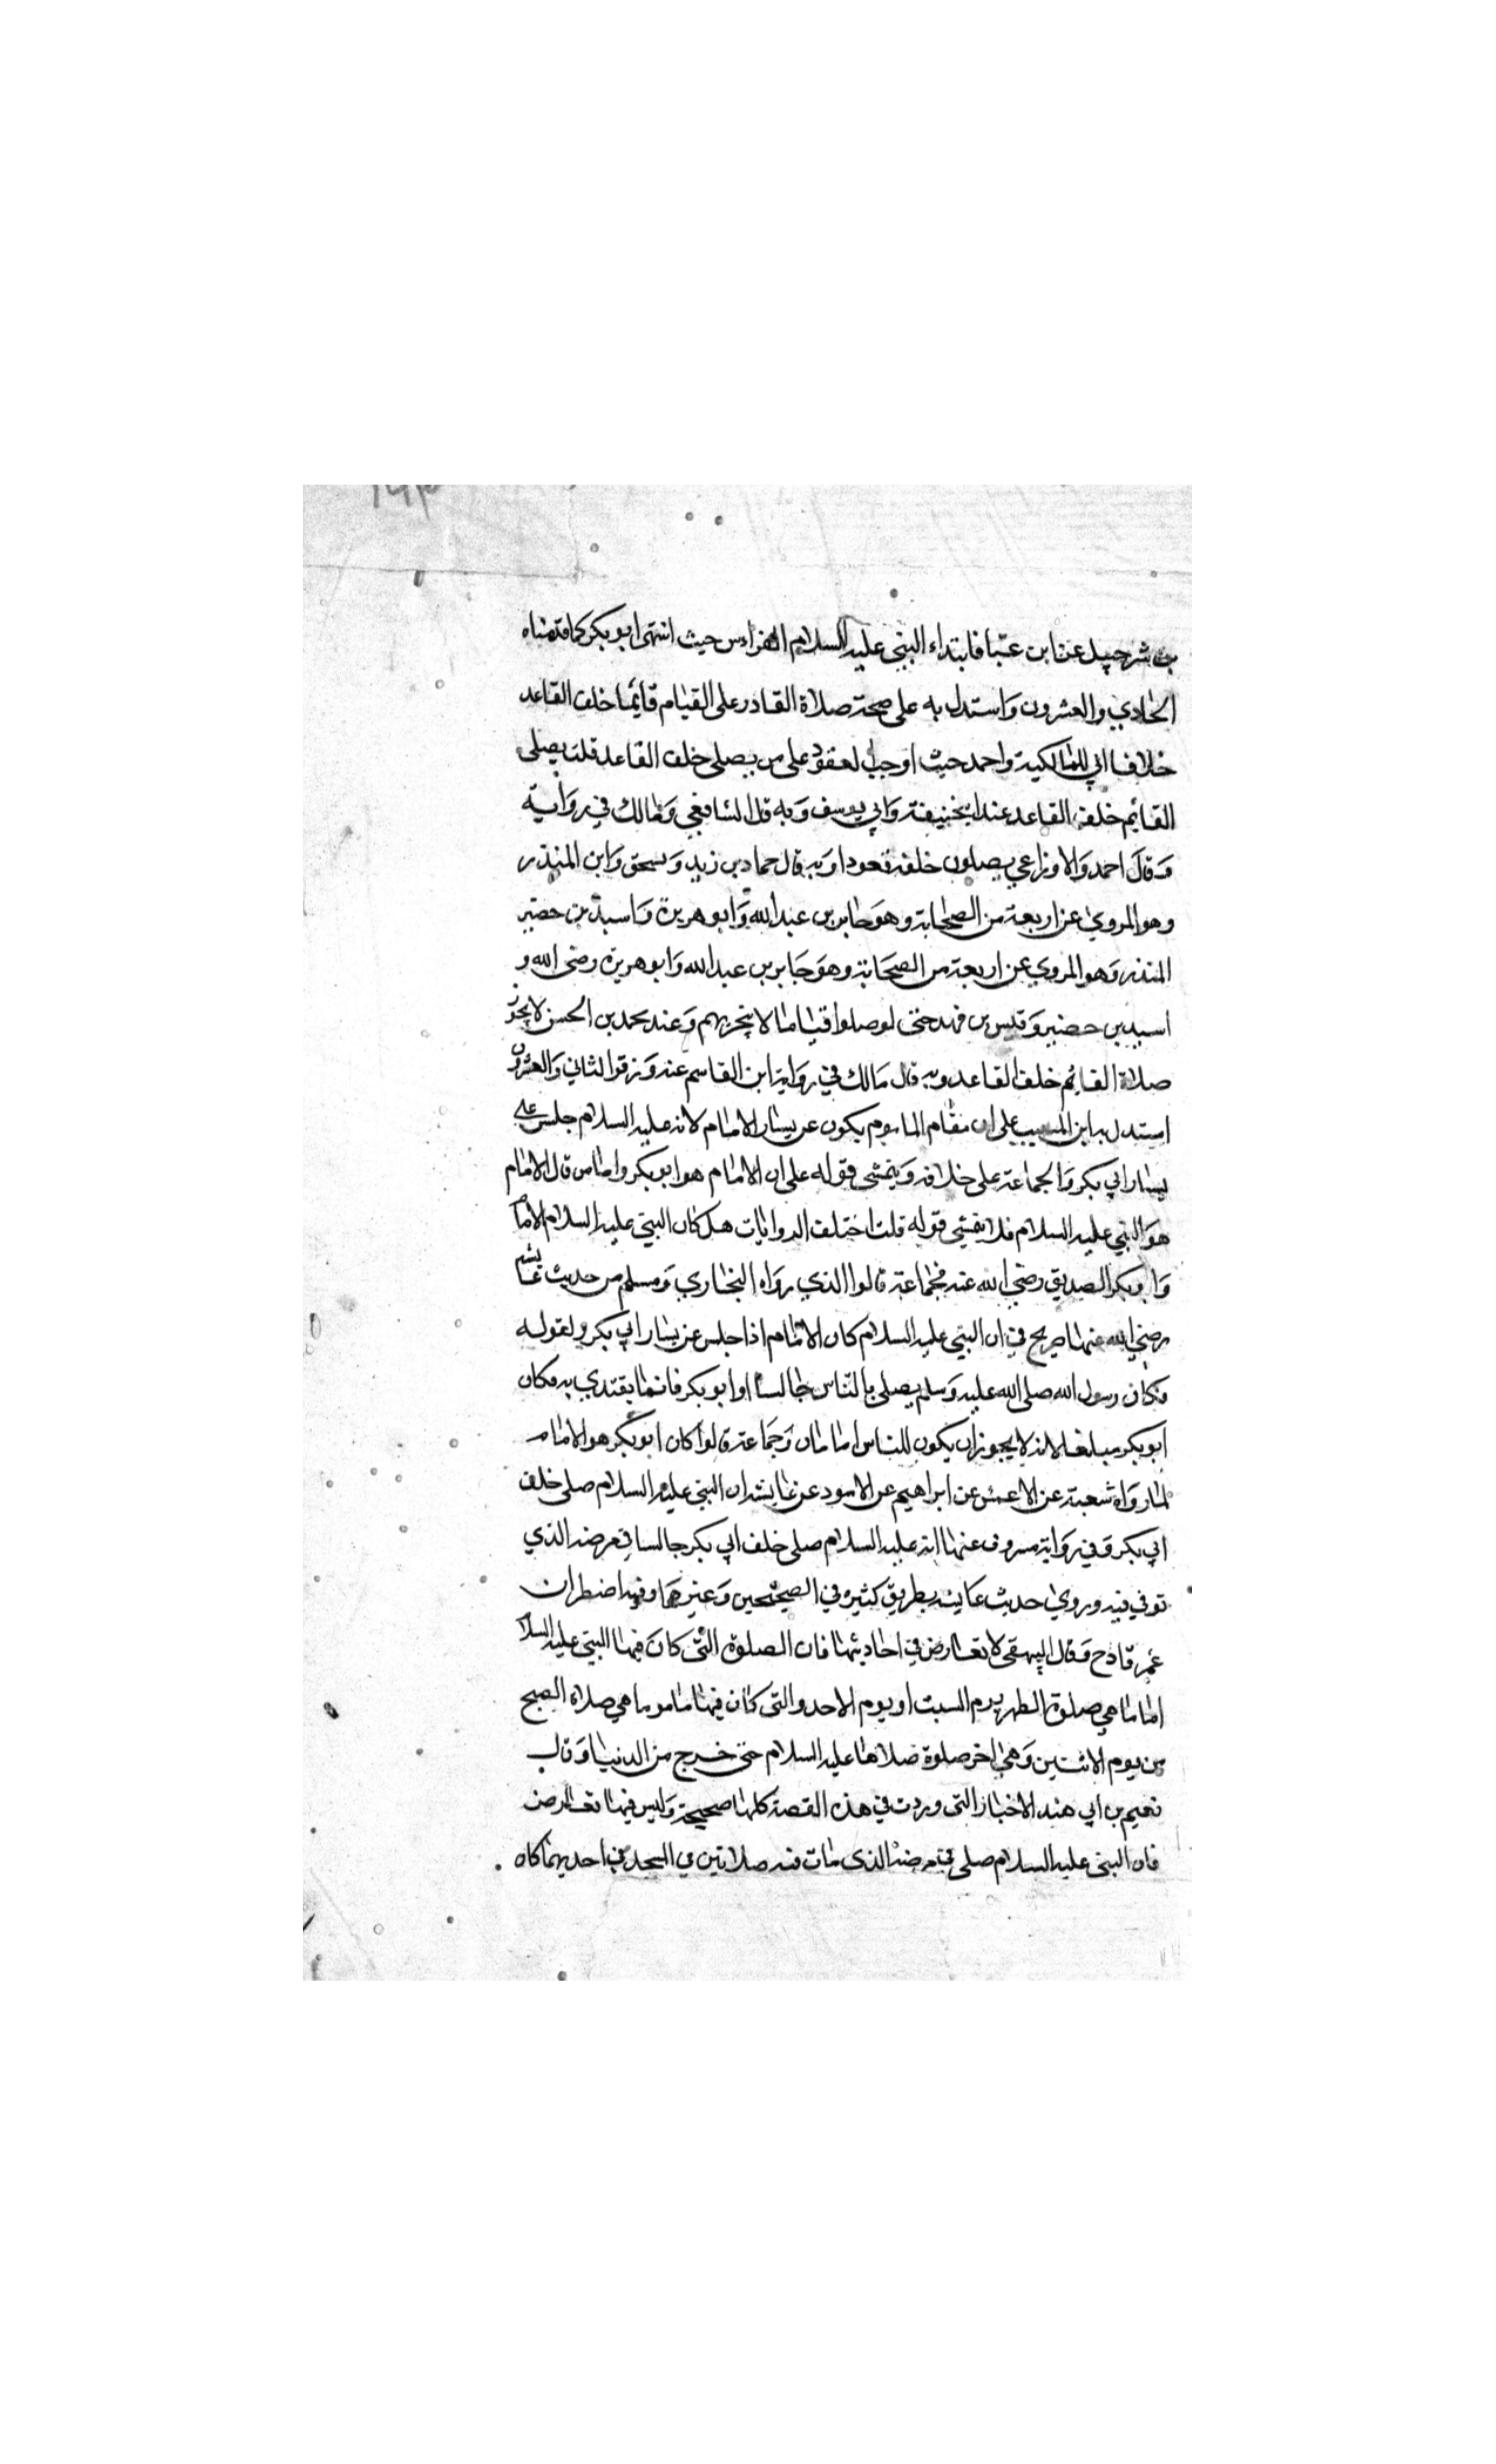 بن شرحبيل عن ابن عبا فابتداء النبى عليه السلام القراءس حيث انتهى ابو بكر كما قدمناه
الحادي والعشرون واستدل به على صحة صلاة القادر على القيام قائما خلف القاعد
خلافا الي للمالكية واحمد حيث اوجب لعقود على من يصلى خلف القاعد قلت يصلى
القائم خلف القاعد عند ابيخنيفة وابي يوسف وبه قال الشافعي ومالك في رواية
وقال احمد والاوزاعي يصلون خلفه قعودا وبه قال حماد بن زيد وسحق وابن المنذر
وهو المروي عن اربعة من الصحابة وهو جابر بن عبد الله وابو هريرة واسيد بن حضير
المنذر وهو المروي عن اربعة من الصحابة وهو جابر بن عبد الله وابو هريرة رضى الله و
اسيد بن حضير وقيس بن فهد حتى لو صلوا قياما لا ينجزيهم وعند محمد بن الحسن لا يجوز
صلاة القائم خلف القاعد وبه قال مالك في رواية ابن القاسم عنه وزقوا لثاني والعشرون
استدل به ابن المسيب على ان مقام الماءموم يكون عن يسار الامام لانه عليه السلام جلس على
يسار ابي بكر والجماعة على خلافه ويتمشى قوله على ان الامام هو ابو بكر واما من قال الامام
هو النبي عليه السلام فلا يتمشي قوله قلت اختلف الروايات هل كان النبي عليه السلام الامام
وابو بكر الصديق رضي الله عنه فجماعة قالوا الذي رواه البخاري ومسلم من حديث عائشه
رضي الله عنها صريح في ان النبي عليه السلام كان الامام اذا جلس عن يسار ابي بكر ولقوله
فكان رسول الله صلى الله عليه وسلم يصلى بالناس جالسا وابو بكر قائما يقتدي به فكان
ابو بكر مبلغا لانه لا يجوز ان يكون للناس امامان وجماعة قالوا كان ابو بكر هو الامام
لما رواه شعبة عن الاعمش عن ابراهيم عن الاسود عن عايشه ان النبي عليه السلام صلى خلف
ابي بكر وفي رواية مسروق عنها انه عليه السلام صلى خلف ابي بكر جالسا في مرضه الذي
توفي فيه وروي حديث عايشه بطريق كثيره في الصحيحين وغيرهما وفيه اضطراب
غير قادح وقال البيهقى لا تعارض في احاديثها فان الصلوة التى كان فيها النبي عليه السلا
اماما هي صلوة الظهر يوم السبت او يوم الاحد والتى كان فيها ماموما هي صلاة الصبح
من يوم الاثنين وهي اخر صلوة صلاها عليه السلام حتى خرج من الدنيا وقال
نعيم بن ابي هند الاخبار التى وردت في هذه القصة كلها صحيحة وليس فيها تعارض
فان النبى عليه السلام صلى في مرضه الذى مات فيه صلاتين في المسجد في احديهما كان